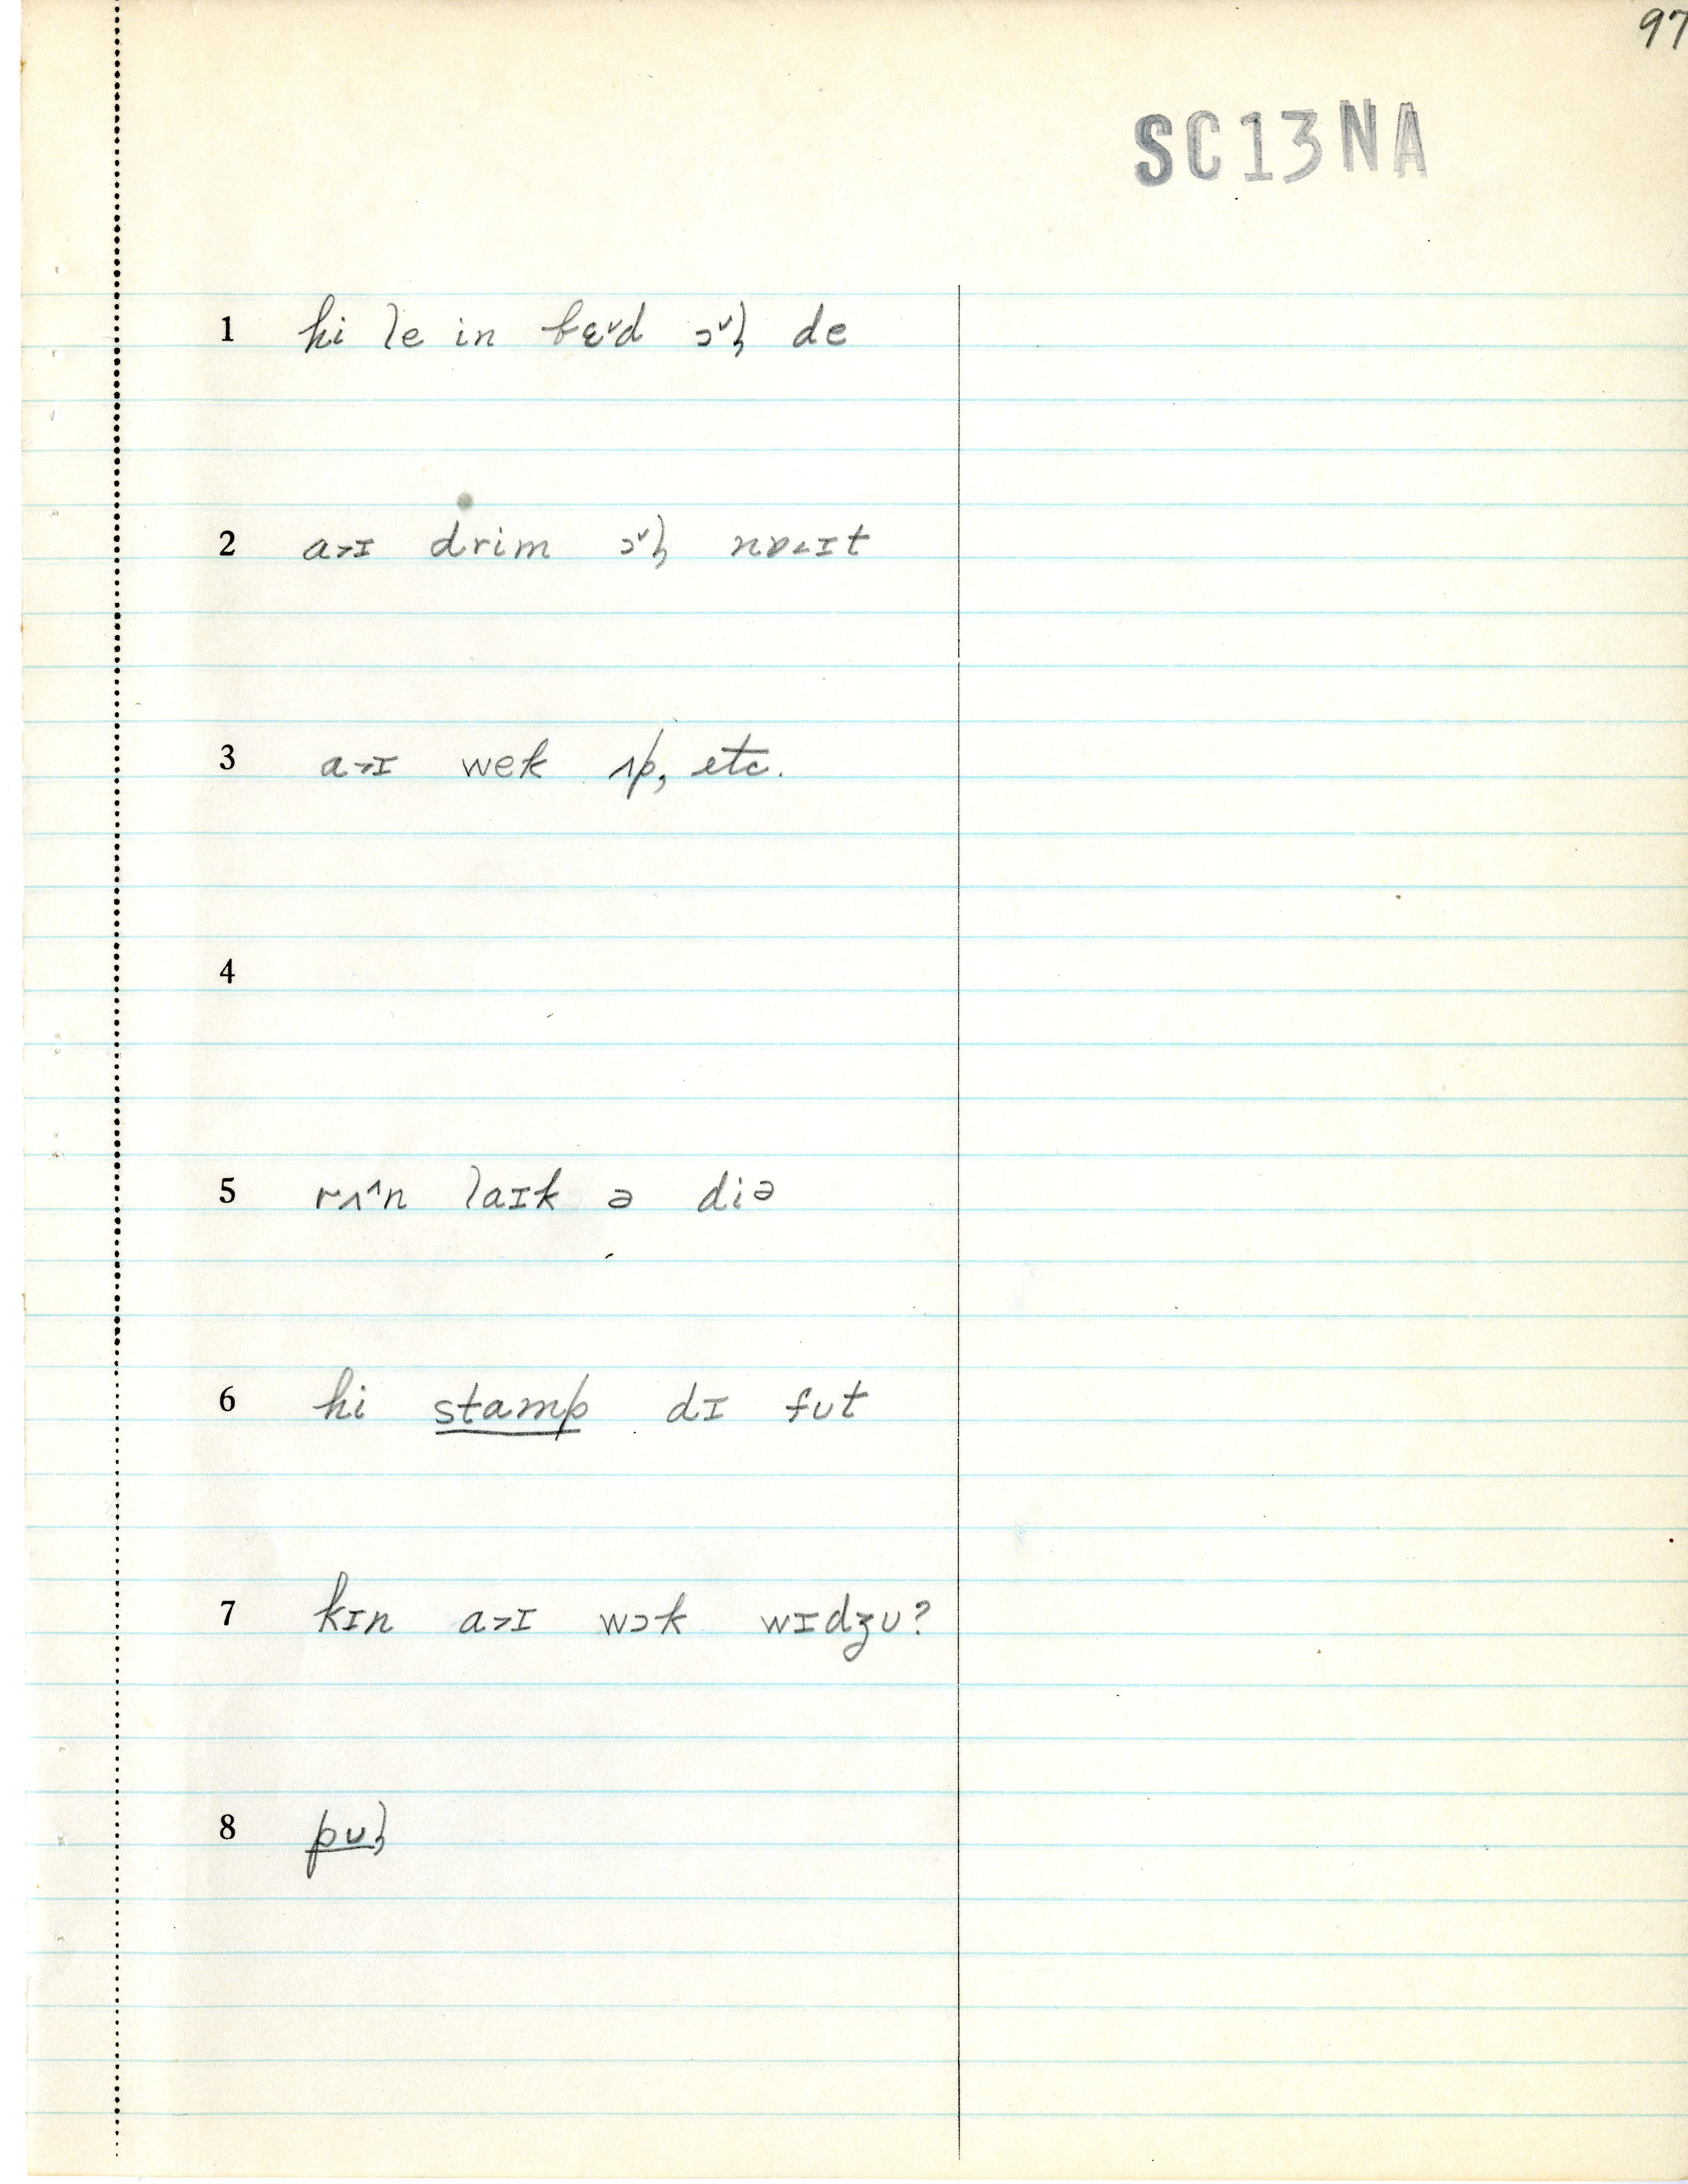 97
SC13NA
1 hi le in bɛ˅d ɔ˅ɫ de
2 a˃ɪ drim ɔ˅ɫ nɒ˂ɪt
3 a˃ɪ wek ʌp, etc.
4
5 rʌ˄n laɪk ə diə
6 hi stamp dɪ fʊt
7 kɪn a˃ɪ wɔk wɪdʒʊ?
8 pʊɫ